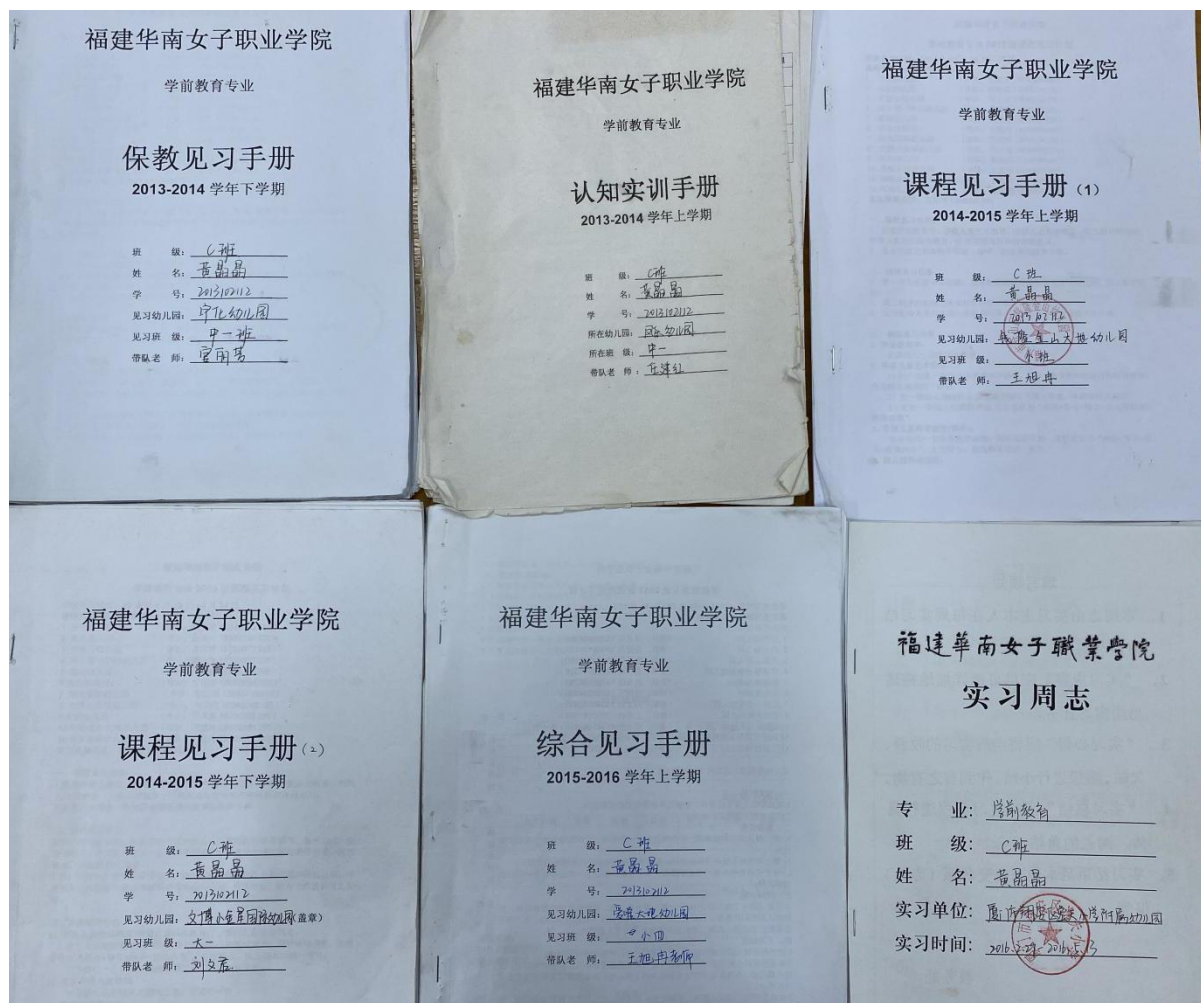 福建华南女子职业学院
学前教育专业
保教见习手册
2013-2014 学年下学期
班 级: C班
姓 名: 黄晶晶
学 号: 2013102112
见习幼儿园: 宁化幼儿园
见习班 级: 中一班
带队老 师:
福建华南女子职业学院
学前教育专业
认知实训手册
2013-2014 学年上学期
班 级: C班
姓 名: 黄晶晶
学 号: 2013102112
所在幼儿园: 幼儿园
所在班 级: 中一
带队老 师:
福建华南女子职业学院
学前教育专业
课程见习手册(1)
2014-2015 学年上学期
班 级: C班
姓 名: 黄晶晶
学 号: 2013102112
见习幼儿园: 金山大地幼儿园
见习班 级: 小班
带队老 师: 王旭冉
福建华南女子职业学院
学前教育专业
课程见习手册(2)
2014-2015 学年下学期
班 级: C班
姓 名: 黄晶晶
学 号: 2013102112
见习幼儿园: 文博小金星国际幼儿园(盖章)
见习班 级: 大一
带队老 师: 刘文君
福建华南女子职业学院
学前教育专业
综合见习手册
2015-2016 学年上学期
班 级: C班
姓 名: 黄晶晶
学 号: 2013102112
见习幼儿园: 大地幼儿园
见习班 级: 小四
带队老 师: 王旭冉老师
福建華南女子職業學院
实习周志
专 业: 学前教育
班 级: C班
姓 名: 黄晶晶
实习单位: 厦门市翔安区小学附属幼儿园
实习时间: 2016.2.